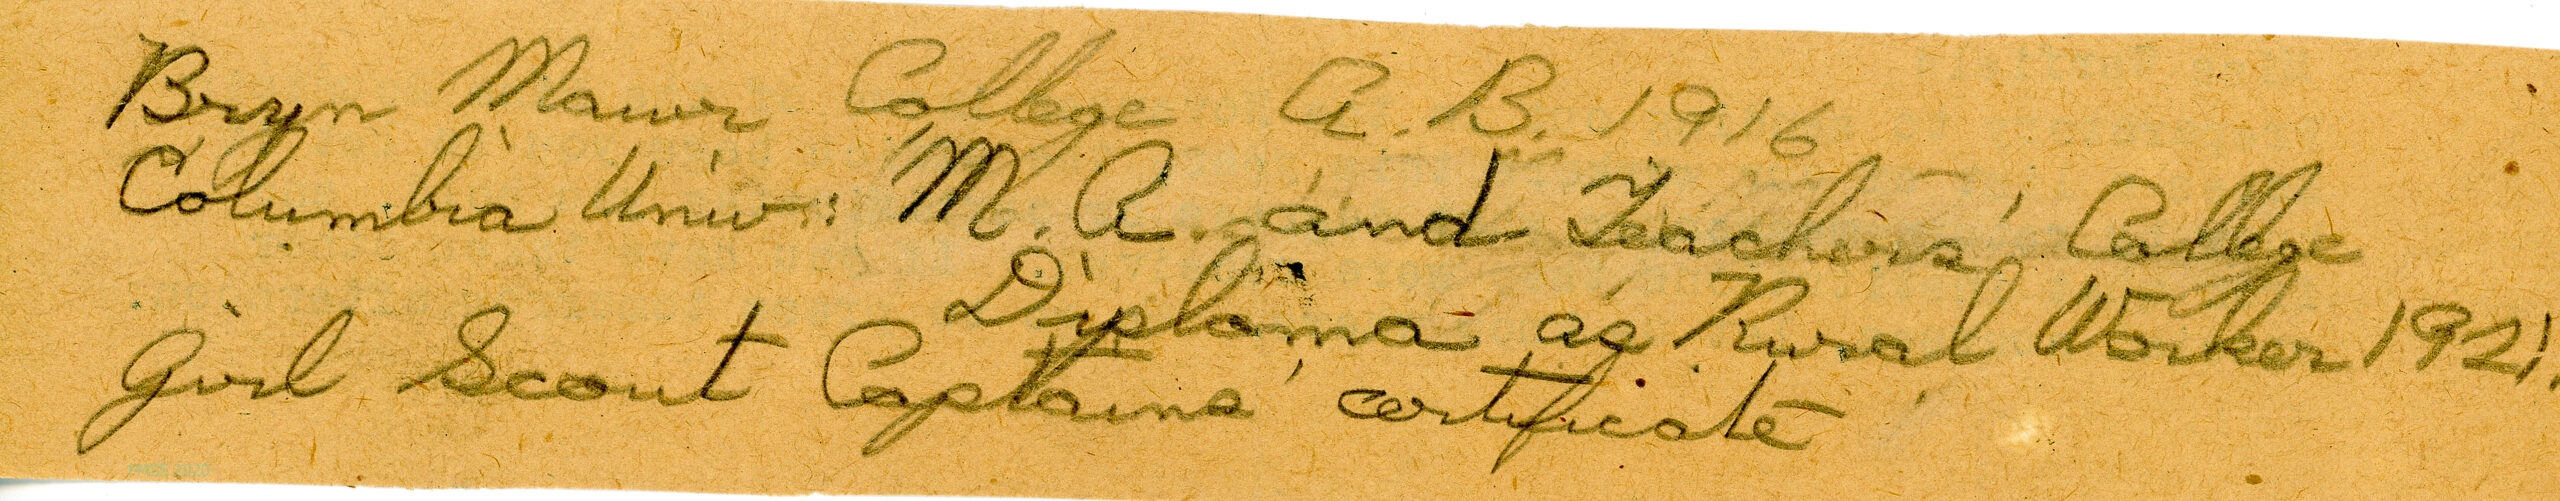 Bryn Mawr College A.B. 1916
Columbia Univ: M.A. and Teachers' College
Diploma as Rural Worker 1921.
Girl Scout Captains' certificate
PMSS 2020